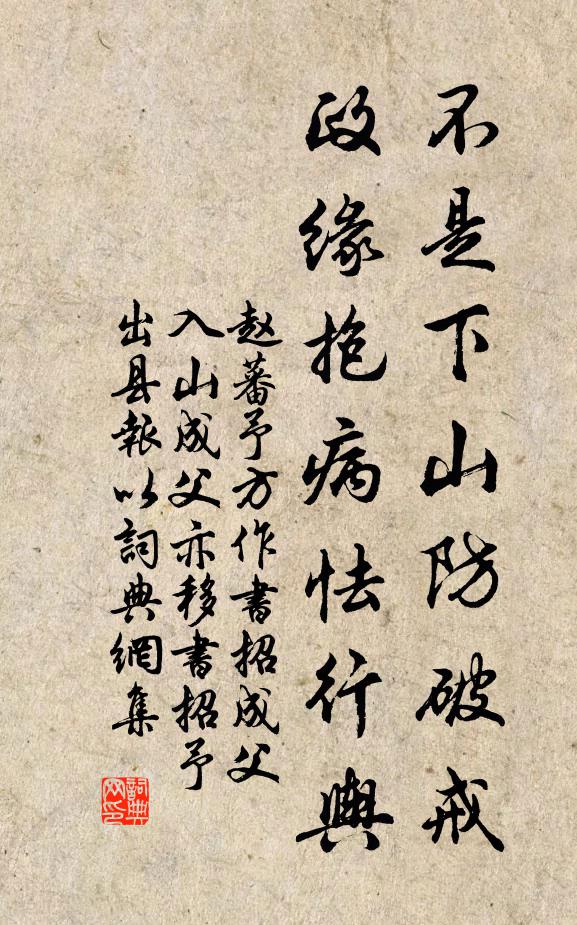 不是下山防破戒
政缘抱病怯行輿
赵蕃予方作書招成父
入山成父亦移書招予
出县報以詞典網集
詞典
网印